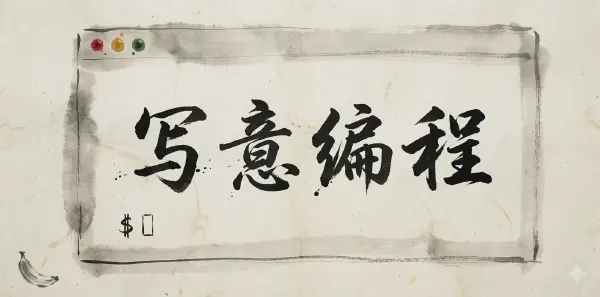 写意编程
$